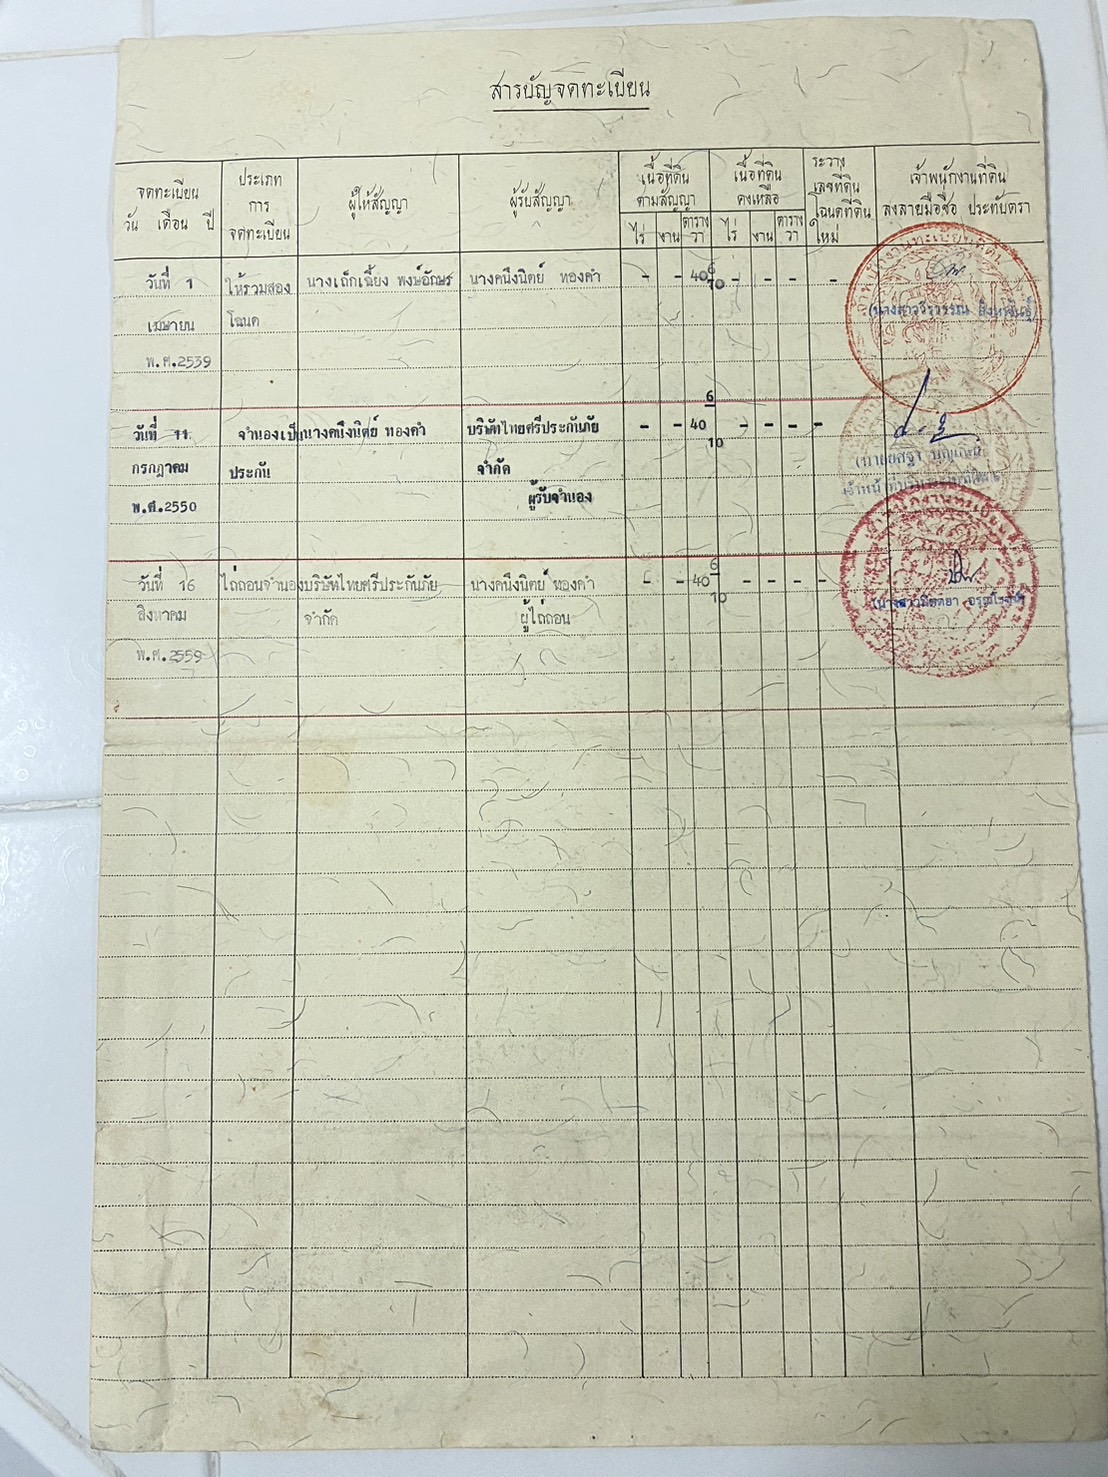 สารบัญจดทะเบียน
จดทะเบียน
วัน เดือน ปี
ประเภท
การ
จดทะเบียน
ผู้ให้สัญญา
ผู้รับสัญญา
เนื้อที่ดิน
ตามสัญญา
ไร่ งาน ตาราง
วา
เนื้อที่ดิน
คงเหลือ
ไร่ งาน ตาราง
วา
ระวาง
เลขที่ดิน
โฉนดที่ดิน
ใหม่
เจ้าพนักงานที่ดิน
ลงลายมือชื่อ ประทับตรา
วันที่ 1 ให้รวมสอง นางเถ็กเฉี้ยง พงษ์อักษร นางคนึงนิตย์ ทองคำ - - 40 6/10 - - - -
เมษายน โฉนด
พ.ศ.2539
วันที่ 11 จำนองเป็น นางคนึงนิตย์ ทองคำ บริษัทไทยศรีประกันภัย - - 40 6/10 - - - -
กรกฎาคม ประกัน จำกัด
พ.ศ.2550 ผู้รับจำนอง
วันที่ 16 ไถ่ถอนจำนอง บริษัทไทยศรีประกันภัย นางคนึงนิตย์ ทองคำ - - 40 6/10 - - - -
สิงหาคม จำกัด ผู้ไถ่ถอน
พ.ศ.2559